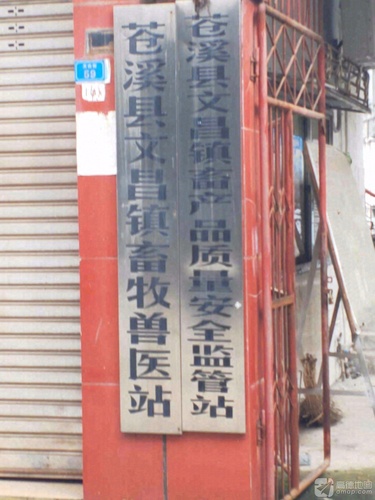 苍溪县文昌镇畜牧兽医站
苍溪县文昌镇畜产品质量安全监管站
59
高德地图
amap.com